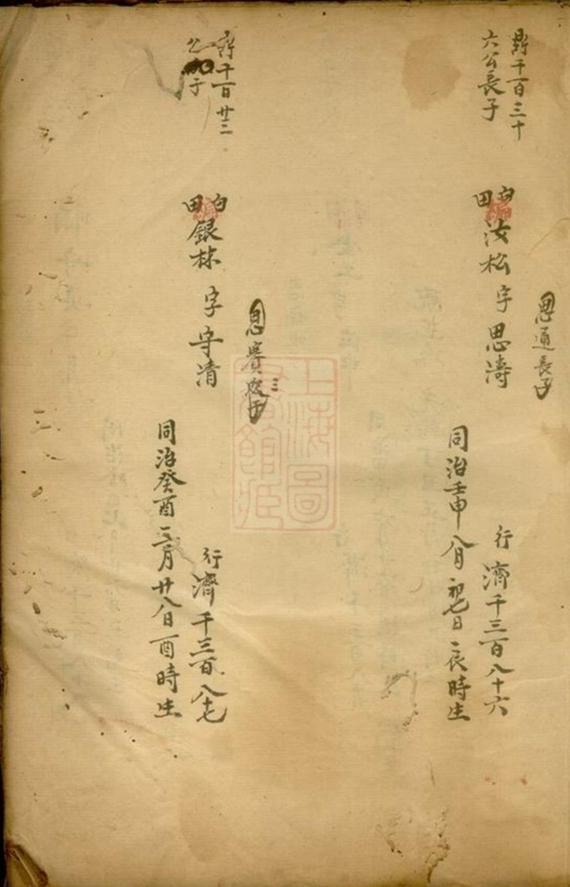 鼎千百三十
六公長子
白田
汝松 字思濤
思通長子
行濟千三百八十六
同治壬申八月初七日辰時生
千百廿三
公子
白田
銀林 字守清
行濟千三百八十七
同治癸酉二月廿八日酉時生
上海圖書館藏